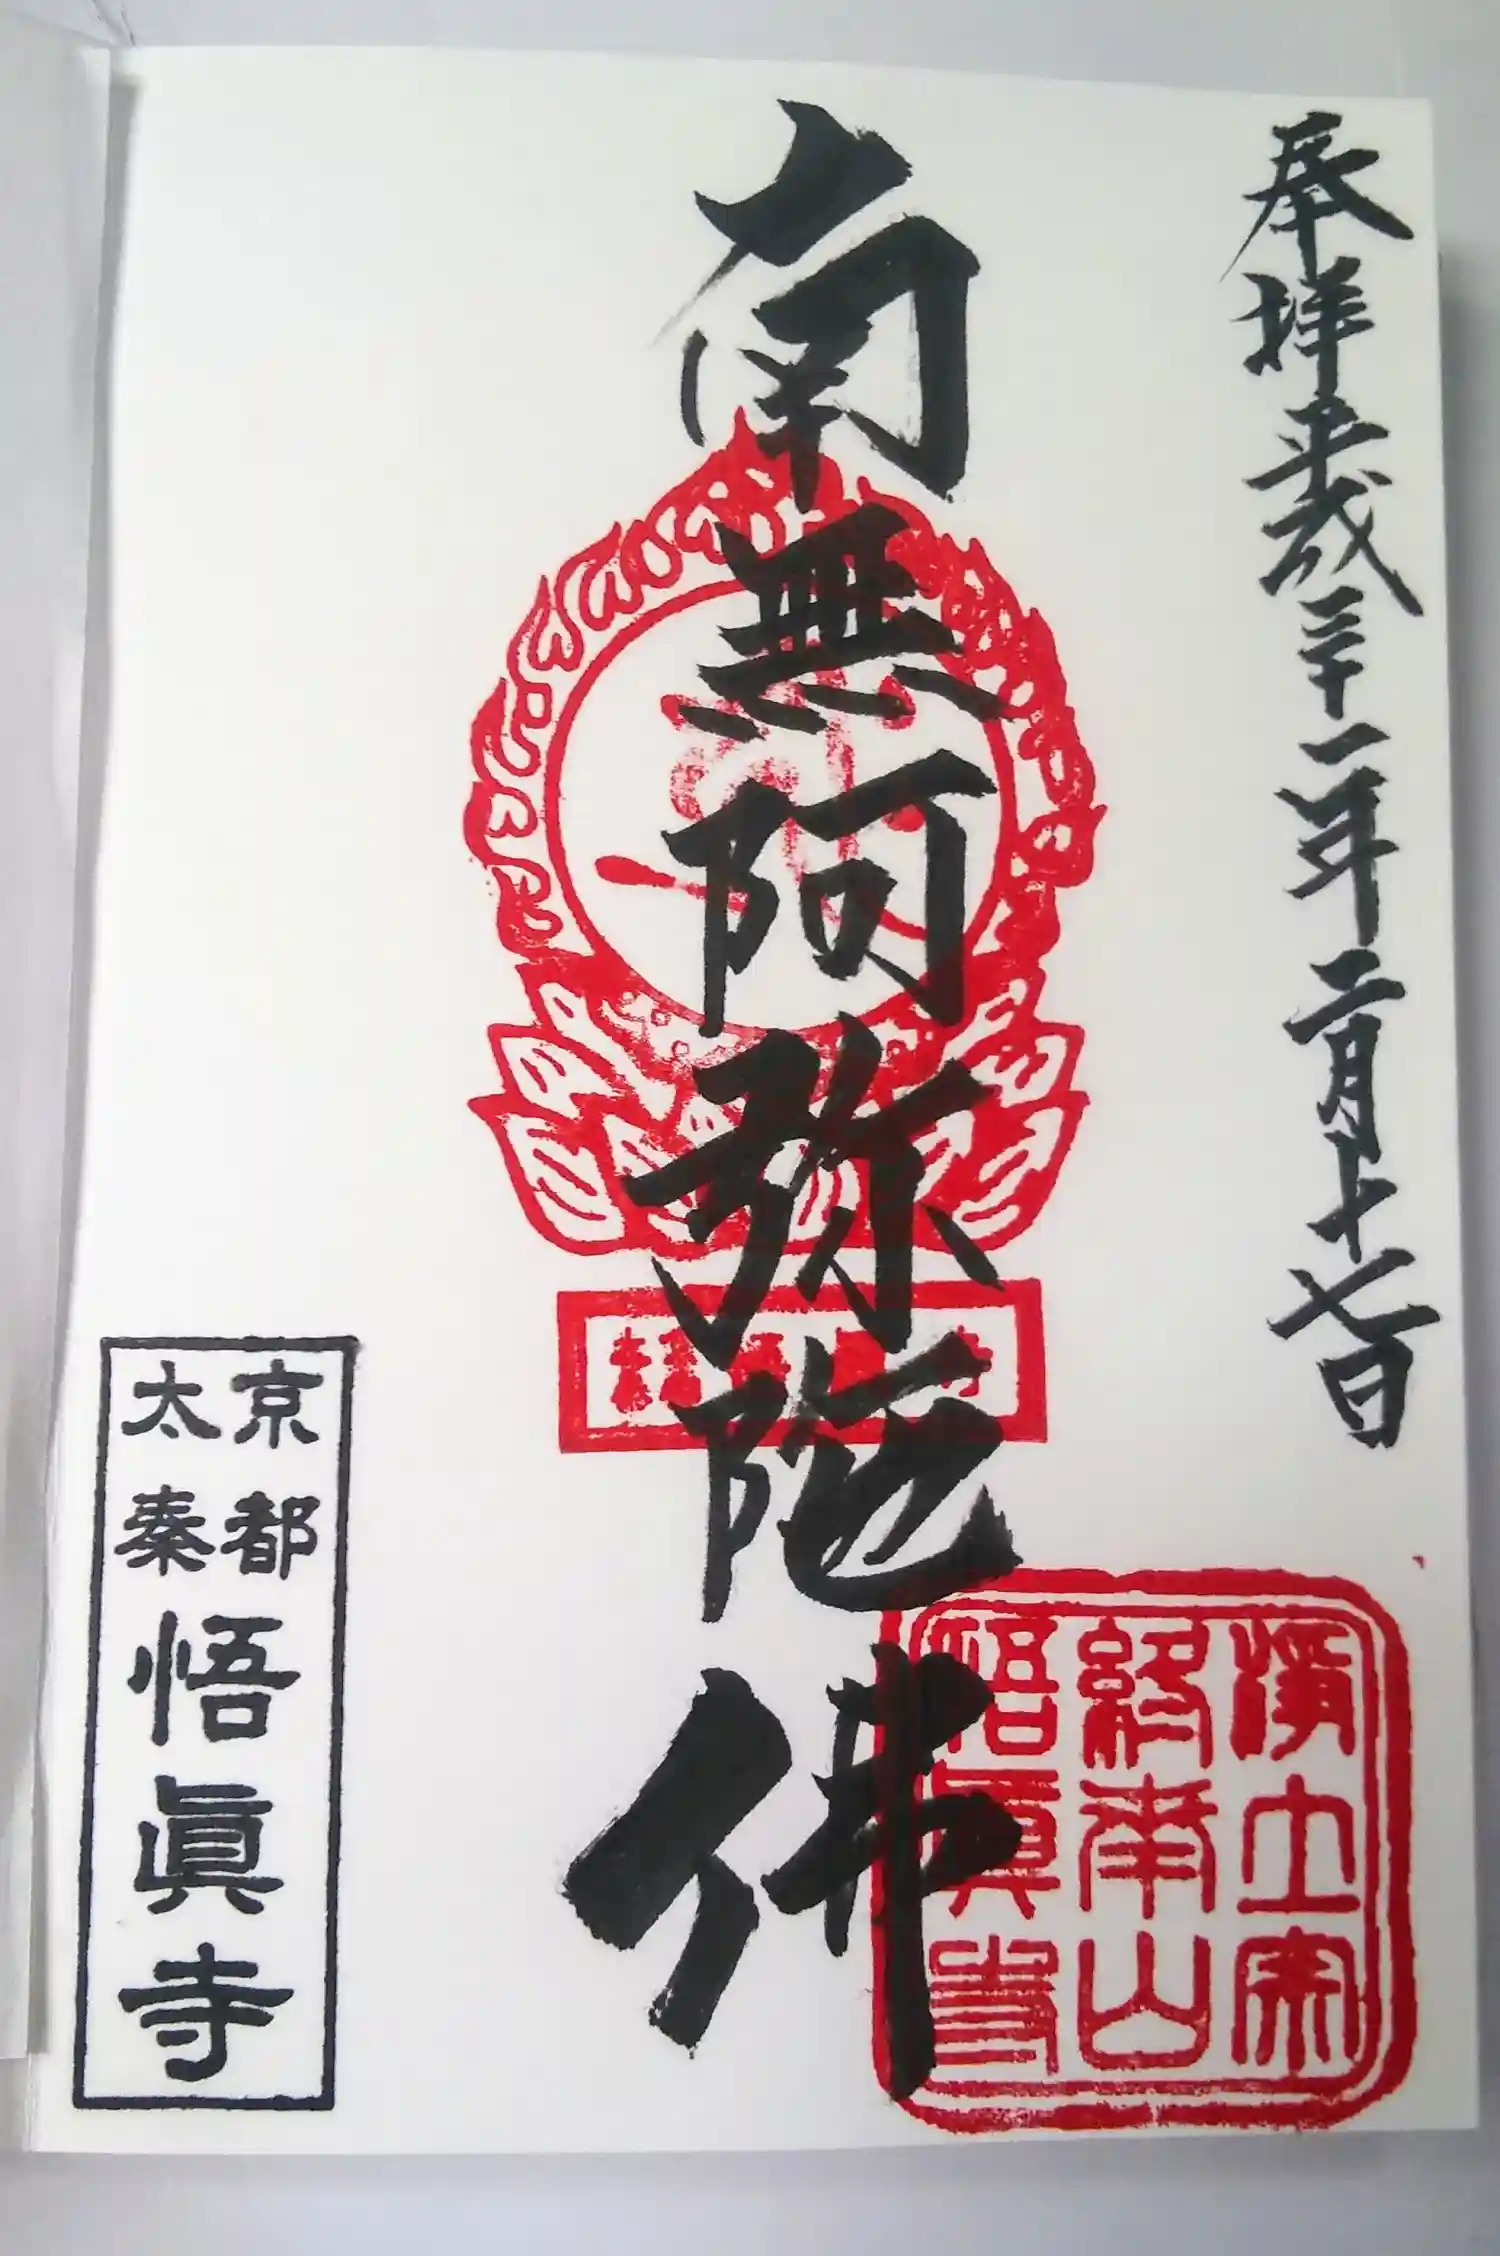 奉拝 平成三十一年二月十七日
南無阿弥陀佛
浄土宗
終南山
悟眞寺
京都
太秦
悟眞寺